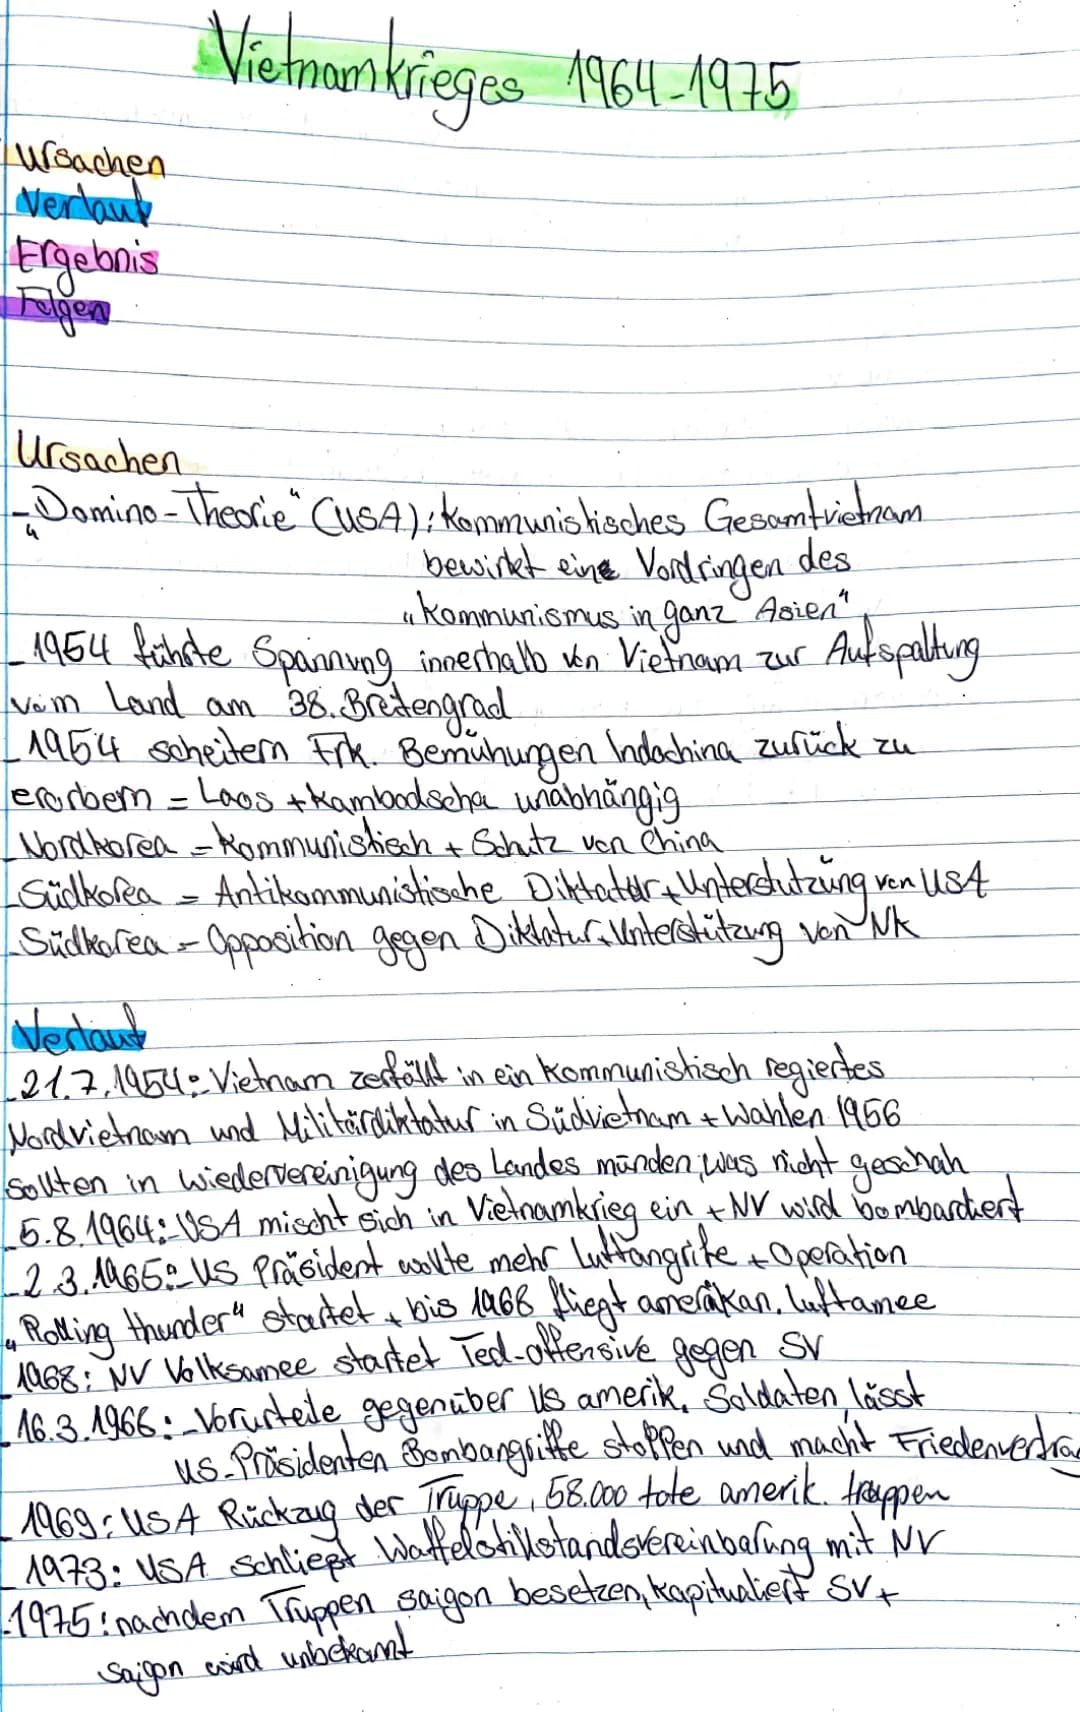 Vietnamkrieges 1964-1975
Ursachen
Verlauf
Ergebnis
Folgen
Ursachen
- „Domino-Theorie“ (USA): Kommunistisches Gesamtvietnam
bewirkt eine Vordringen des
„Kommunismus in ganz Asien“
- 1954 führte Spannung innerhalb von Vietnam zur Aufspaltung
vom Land am 38. Breitengrad
- 1954 scheitern Frk. Bemühungen Indochina zurück zu
erorbern = Laos + Kambodscha unabhängig
- Nordkorea = Kommunistisch + Schutz von China
- Südkorea = Antikommunistische Diktatur + Unterstützung von USA
- Südkorea = Opposition gegen Diktatur + Unterstützung von NK
Verlauf
- 21.7.1954: Vietnam zerfällt in ein kommunistisch regiertes
Nordvietnam und Militärdiktatur in Südvietnam + Wahlen 1956
sollten in wiedervereinigung des Landes münden, was nicht geschah
- 5.8.1964: USA mischt sich in Vietnamkrieg ein + NV wird bombardiert
- 2.3.1965: US Präsident wollte mehr Luftangrife + Operation
„Rolling thunder“ startet + bis 1968 fliegt amerikan. luftamee
- 1968: NV Volksamee startet Ted-offensive gegen SV
- 16.3.1968: - Vorurteile gegenüber US amerik. Soldaten, lässt
US-Präsidenten Bombangriffe stoppen und macht Friedenvertrag
- 1969: USA Rückzug der Truppe, 58.000 tote amerik. truppen
- 1973: USA schließt Waffelstillstandsvereinbarung mit NV
- 1975: nachdem Truppen saigon besetzen, kapitualiert SV +
Saigon wird unbekannt